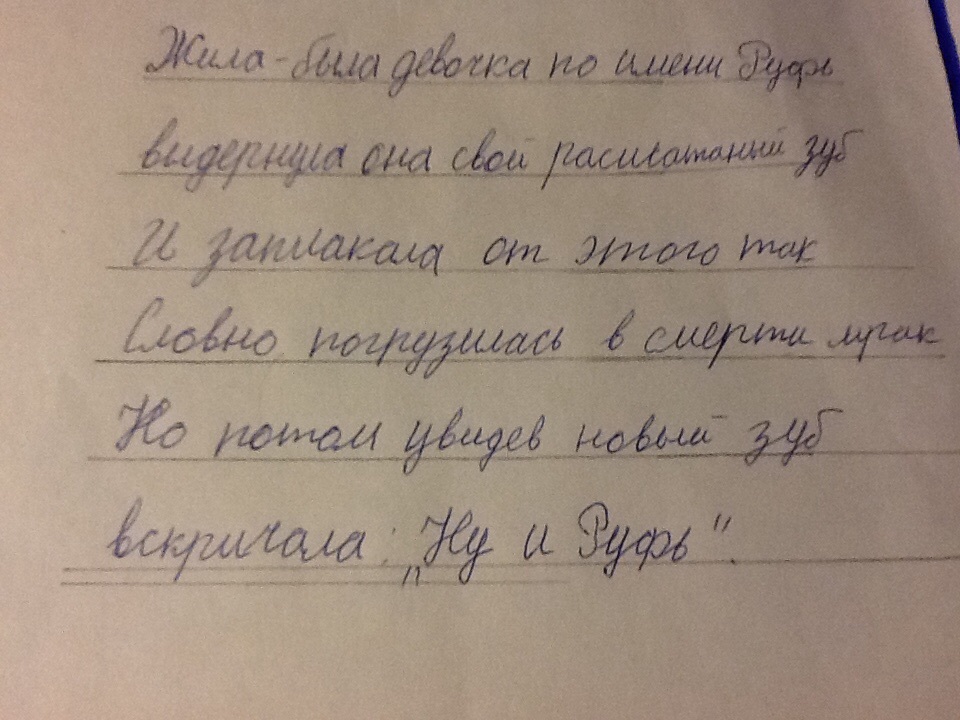 Жила-была девочка по имени Руфь
выдернула она свой расшатаный зуб
И заплакала от этого так
Словно погрузилась в смерти мрак
Но потом увидев новый зуб
вскричала: „Ну и Руфь".